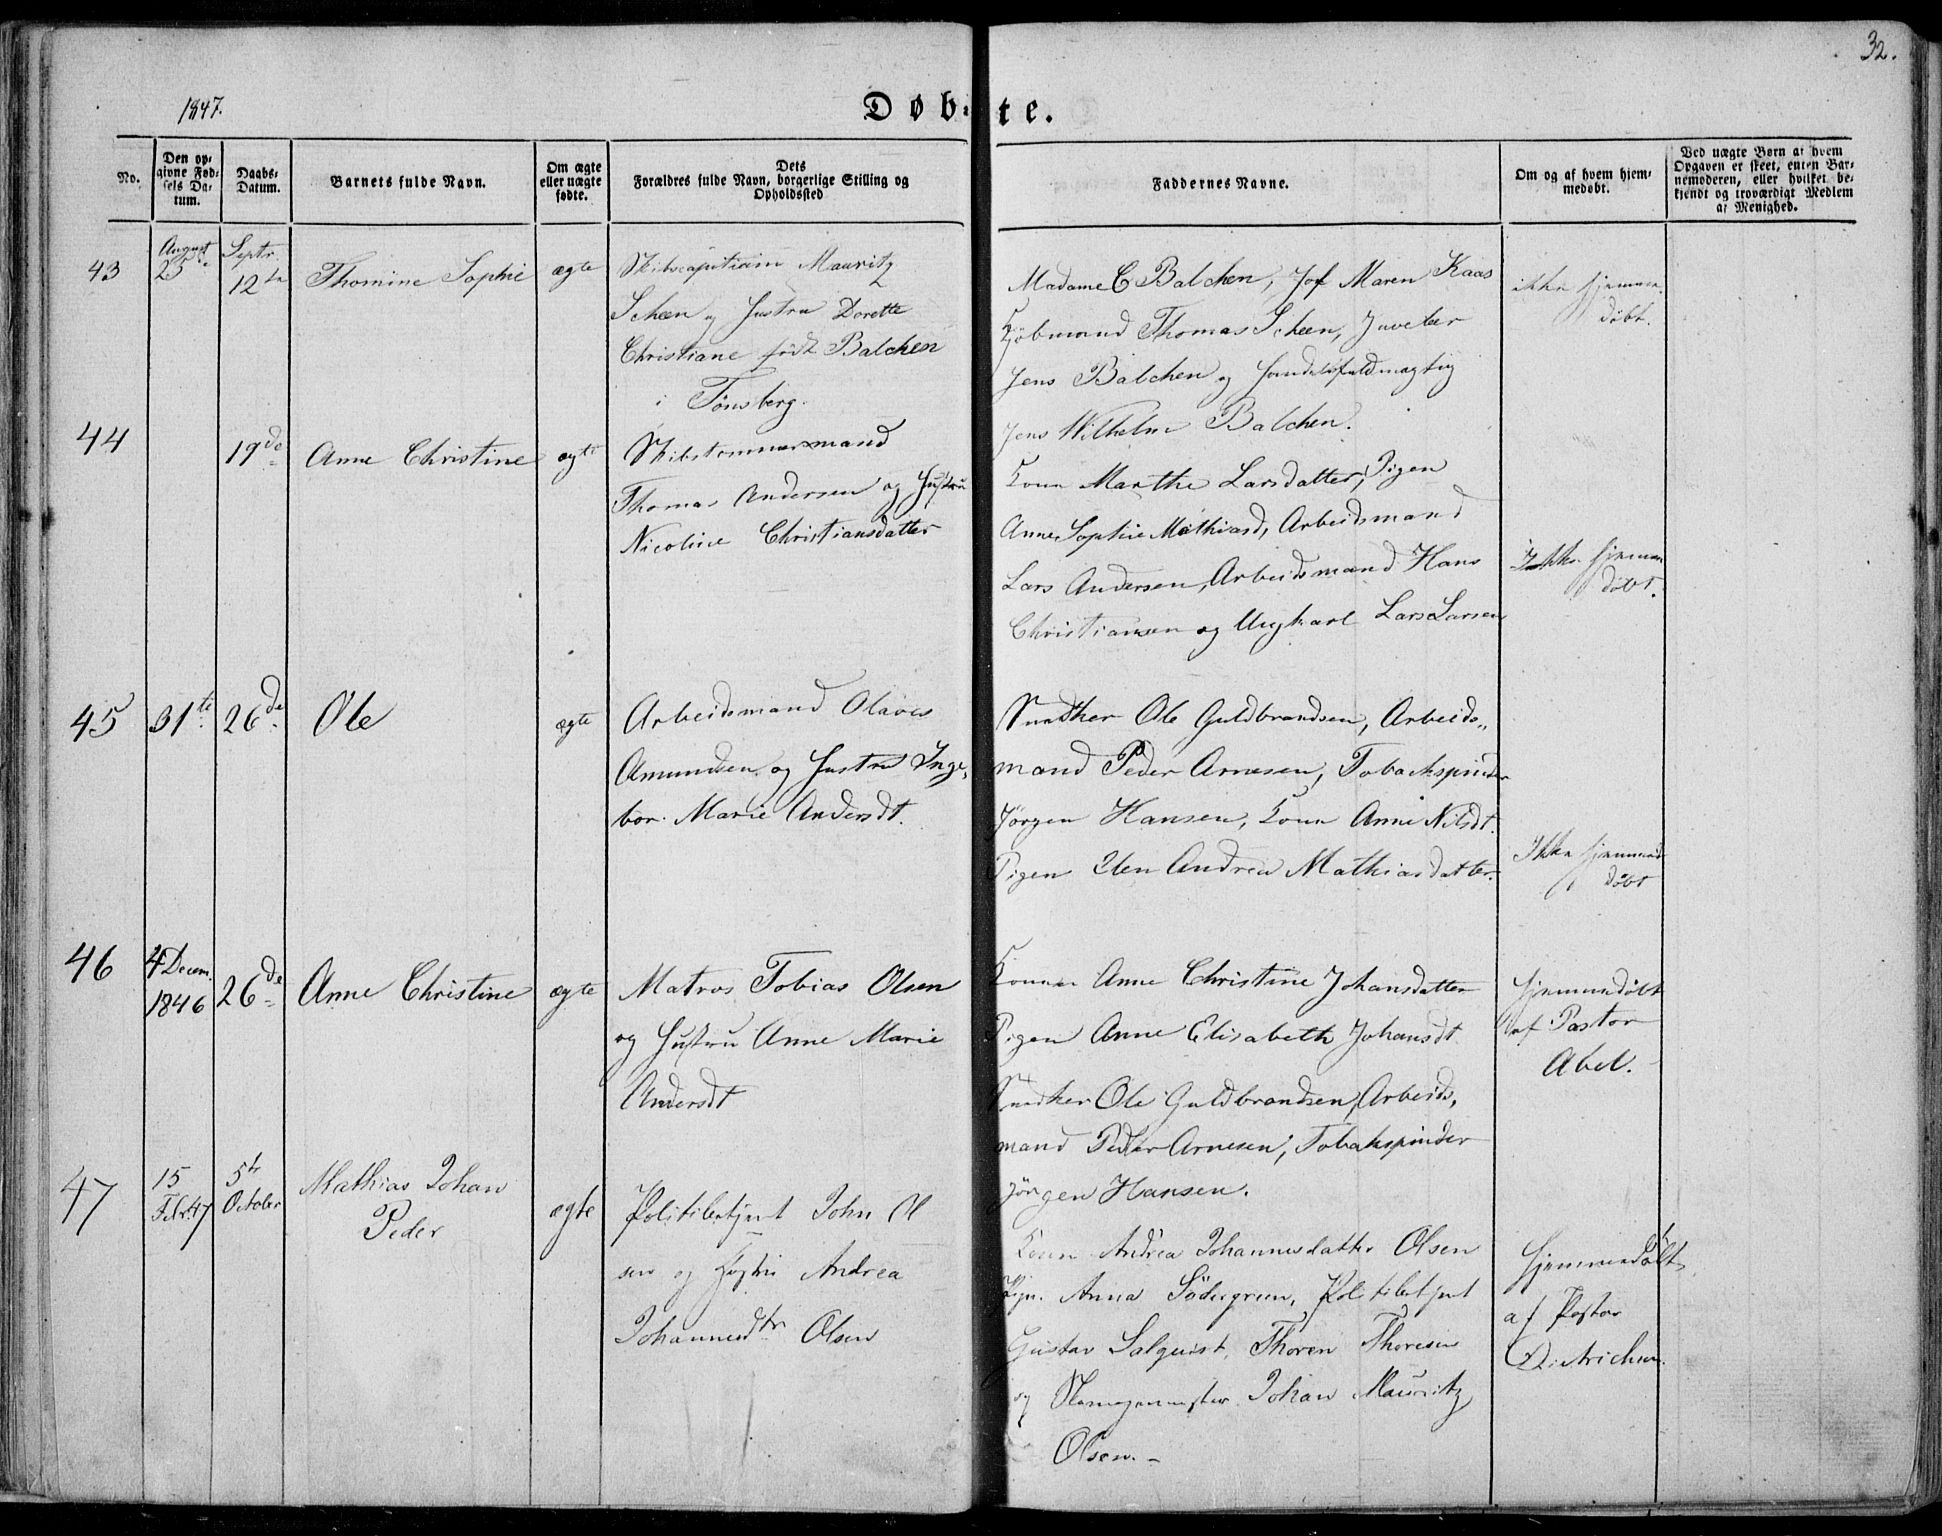 32.
1847.
Døb- te.
No.
Den op-
givne Fød-
sels Da-
tum.
Daabs-
Datum.
Barnets fulde Navn.
Om ægte
eller uægte
fødte.
Dets
Forældres fulde Navn, borgerlige Stilling og
Opholdssted
Faddernes Navne.
Om og af hvem hjem-
medøbt.
Ved uægte Børn at hvem
Opgaven er skeet, enten Bar-
nemoderen, eller hvilket be-
kjendt og troværdigt Medlem
af Menighed.
43
August
25
Septr.
12te
Thomine Sophie
ægte
Skibscapitain Mauritz
Scheen og Hustru Dorette
Christiane født Balchen
i Tønsberg.
Madame C Balchen, Jof Maren Kaas
Kjøbmand Thomas Scheen, Juveleer
Jens Balchen og Handelsfuldmægtig
Jens Wilhelm Balchen.
ikke hjemme
døbt.
44
19de
Anne Christine
ægte
Skibstømmermand
Thomas Andersen og Hustru
Nicoline Christiansdatter
Kone Marthe Larsdatter, Pigen
Anne Sophie Mathiasd, Arbeidsmand
Lars Andersen, Arbeidsmand Hans
Christiansen og Ungkarl Lars Larsen
Ikke hjemme
døbt.
45
31te
26de
Ole
ægte
Arbeidsmand Olaves
Amundsen og Hustru Inge-
bor. Marie Andersdt.
Snedker Ole Guldbrandsen, Arbeids-
mand Peder Arnesen, Tobakspinder
Jørgen Hansen, Kone Anne Nilsdt.
Pigen Elen Andrea Mathiasdatter.
Ikke hjemme
døbt
46
4 Decem.
1846
26de
Anne Christine
ægte
Matros Tobias Olsen
og Hustru Anne Marie
Andersdt
Konen Anne Christine Johansdatter
Pigen Anne Elisabeth Johansdt
Snedker Ole Guldbrandsen, Arbeids-
mand Peder Arnesen, Tobakspinder
Jørgen Hansen.
hjemmedøbt
af Pastor
Abel.
47
15
Febr. 47
5te
October
Mathias Johan
Peder
ægte
Politibetjent John Ol
sen og Hustru Andrea
Johannesdtr Olsen
Kone Andrea Johannesdatter Olsen
Pign. Anna Södergreen, Politibetjent
Gustav Salquist, Thoren Thoresen
og Johan Mauritz
Olsen.-
hjemmedøbt
af Pastor
Dietrichsen.